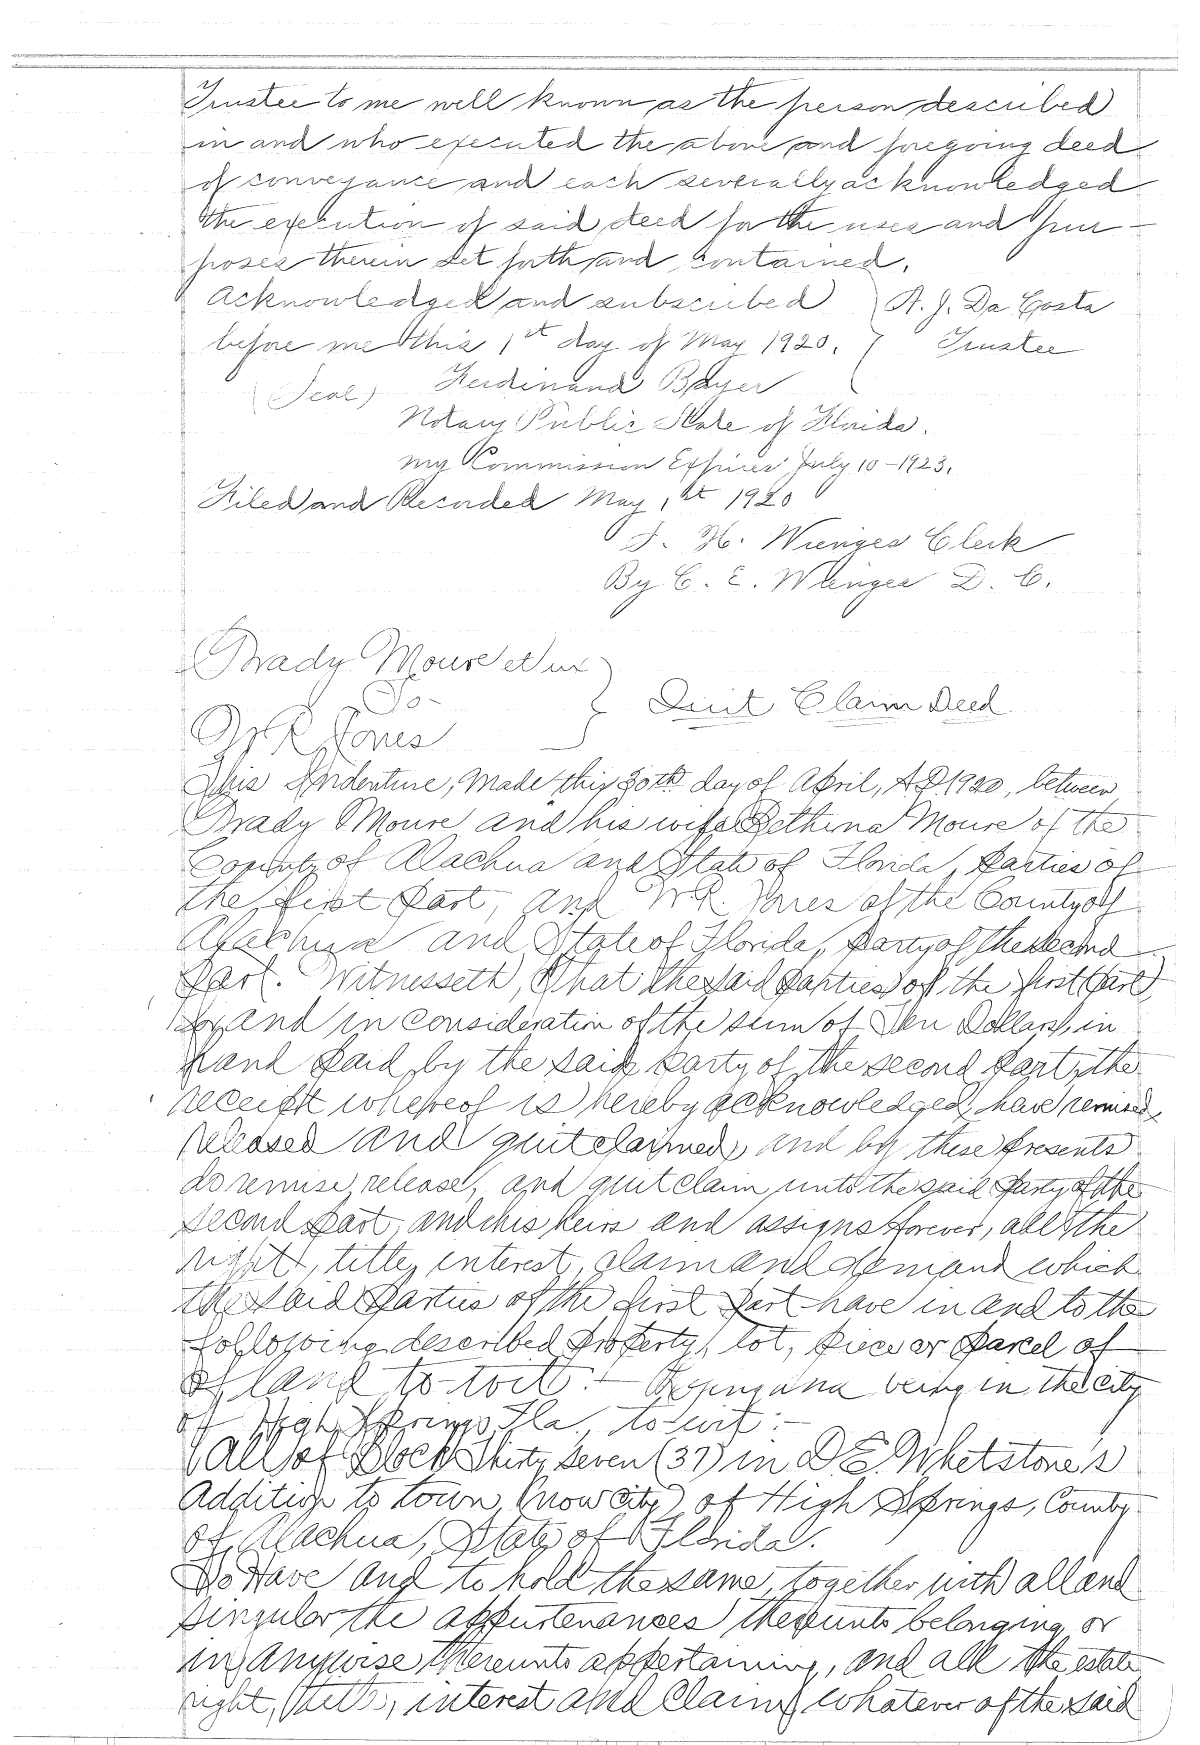 Trustee to me well known as the person described
in and who executed the above and foregoing deed
of conveyance and each severally acknowledged
the execution of said deed for the uses and pur-
poses therein set forth and contained.
Acknowledged and subscribed } A. J. Da Costa
before me this 1st day of May 1920. } Trustee
(Seal) Ferdinand Bayer
Notary Public State of Florida.
My Commission Expires July 10-1923.
Filed and Recorded May 1st 1920
S. H. Wienges Clerk
By C. E. Wienges D. C.
Brady Moure et ux
To-
W R Jones
} Quit Claim Deed
This Indenture, Made this 30th day of April, A D 1920, between
Brady Moure and his wife Bethina Moure of the
County of Alachua and State of Florida, parties of
the first part, and W.R. Jones of the County of
Alachua and State of Florida, party of the second
part. Witnesseth, that the said parties of the first part,
for and in consideration of the sum of Ten Dollars, in
hand paid by the said party of the second part, the
receipt whereof is hereby acknowledged, have remised,
released and quitclaimed, and by these presents
do remise, release, and quitclaim unto the said party of the
second part, and his heirs and assigns forever, all the
right, title, interest, claim and demand which
the said parties of the first part have in and to the
following described property, lot, piece or parcel of
of land to-wit:- lying and being in the city
of High Springs Fla, to-wit:-
All of Block Thirty seven (37) in D.E. Whetstone's
Addition to town (now city) of High Springs, County
of Alachua, State of Florida.
To Have and to hold the same, together with all and
singular the appurtenances thereunto belonging or
in anywise thereunto appertaining, and all the estate
right, title, interest and claim whatever of the said